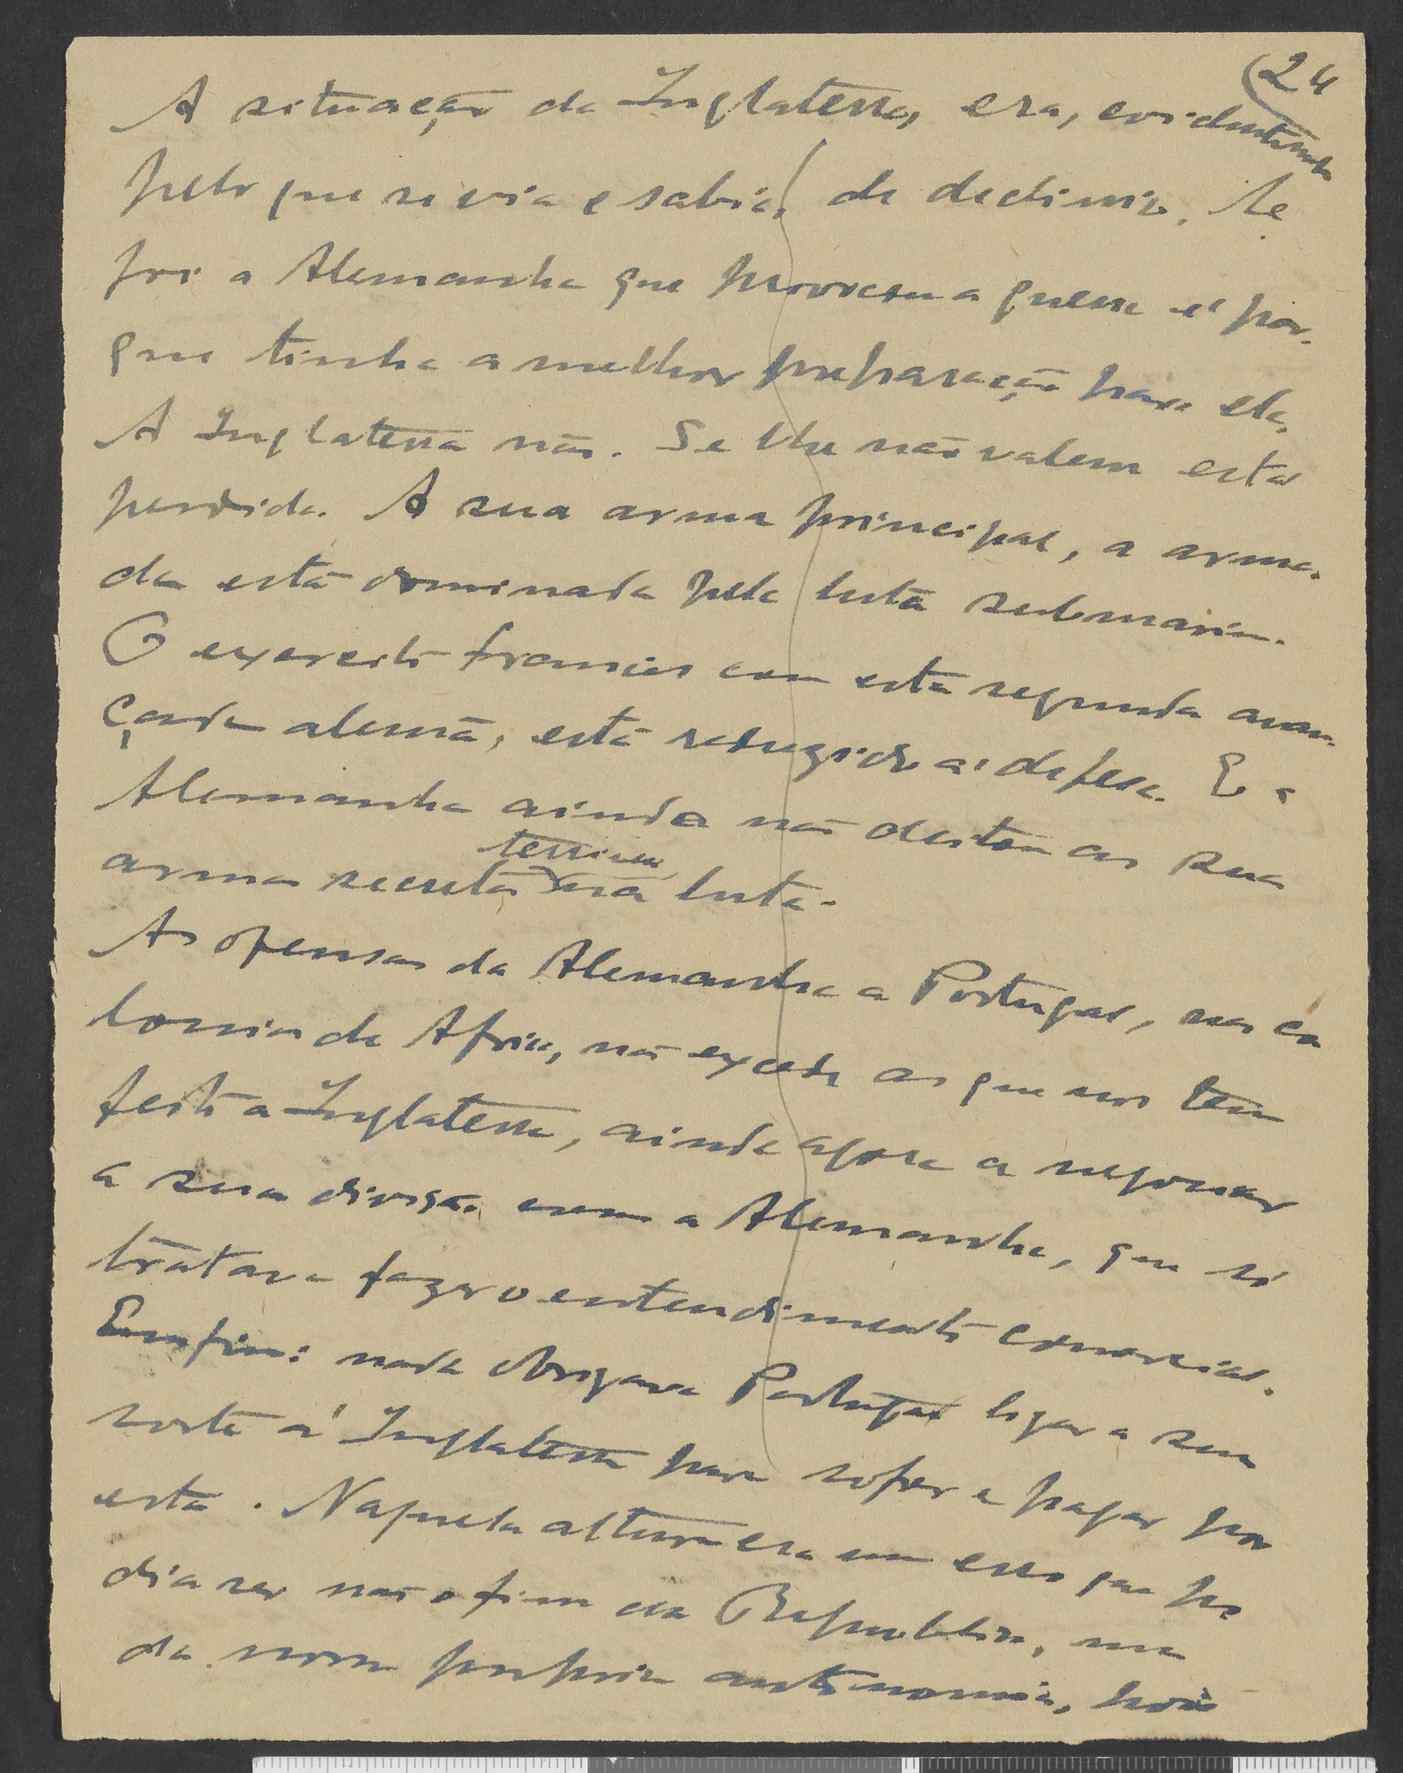 24
A situação da Inglaterra, era, evidentemente
pelo que se via e sabia, de declinio. Se
foi a Alemanha que provocou a guerra é por-
que tinha a melhor preparação para ela.
A Inglaterra não. Se lhe não valem está
perdida. A sua arma principal, a arma-
da está dominada pela luta submarina.
O exercito francies com esta segunda avan-
çada alemã, está reduzido á defesa. E a
Alemanha ainda não as sua
terrivel
arma secreta na luta.
As ofensas da Alemanha a Portugal, nas co
lonias de Africa, não excede as que nos tem
feito a Inglaterra, ainda agora a negociar
a sua divisão com a Alemanha, que só
tratava fazer o entendimento comercial.
Emfim: nada obrigava Portugal ligar a sua
sorte á Inglaterra para sofrer e pagar por
esta. Naquela altura era um erro que po
dia ser não o fim da Republica, mas
da nossa propria autonomia, pois